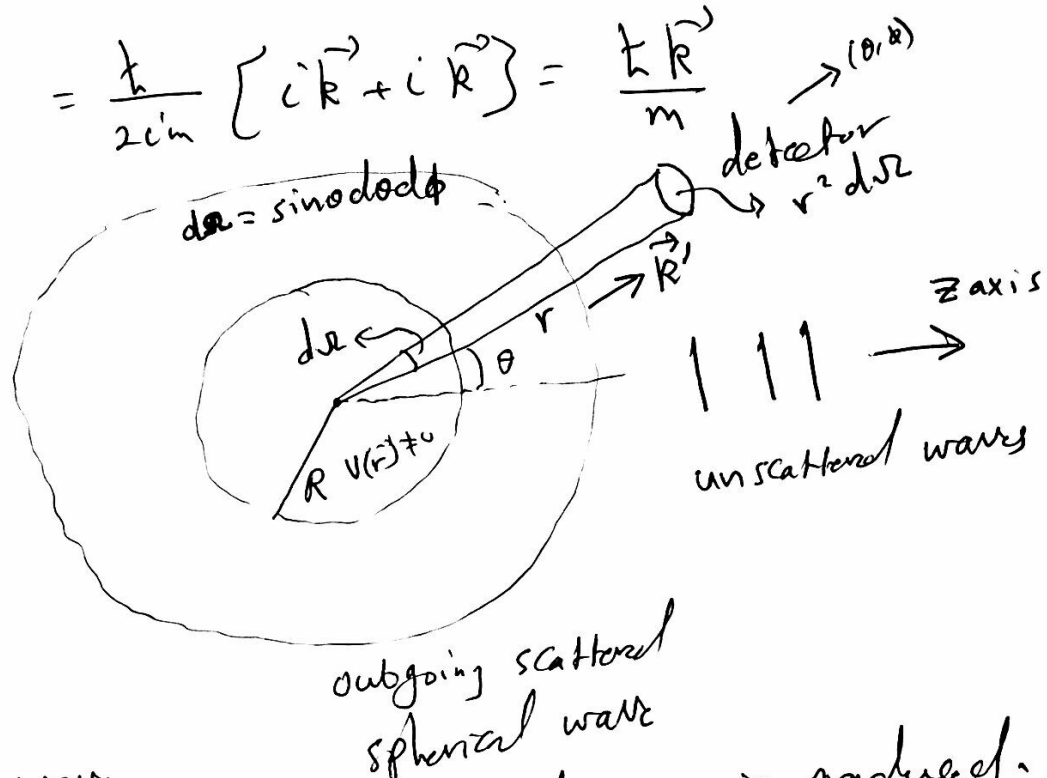 = ℏ/2im [ i k⃗ + i k⃗ } = ℏk⃗/m
(θ, φ)
detector
r² dΩ
dΩ = sinθdθdϕ
k⃗'
z axis
dΩ
r
θ
R V(r⃗)≠0
unscattered waves
outgoing scattered
spherical wave